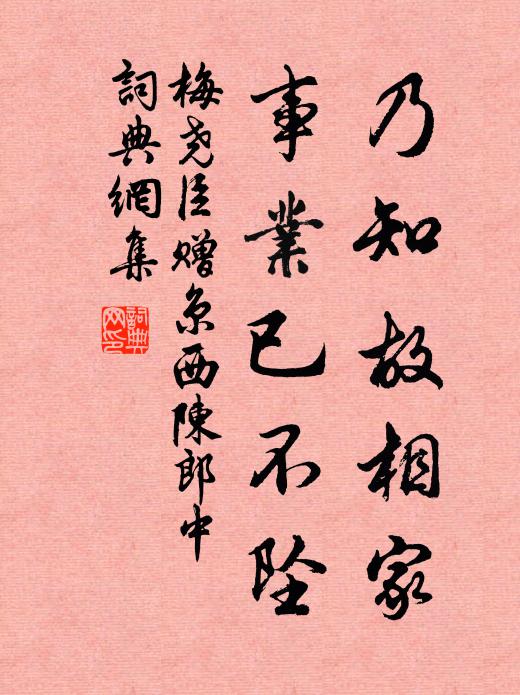 乃知故相家
事業已不墜
梅尧臣赠京西陳郎中
詞典網集
詞典网印